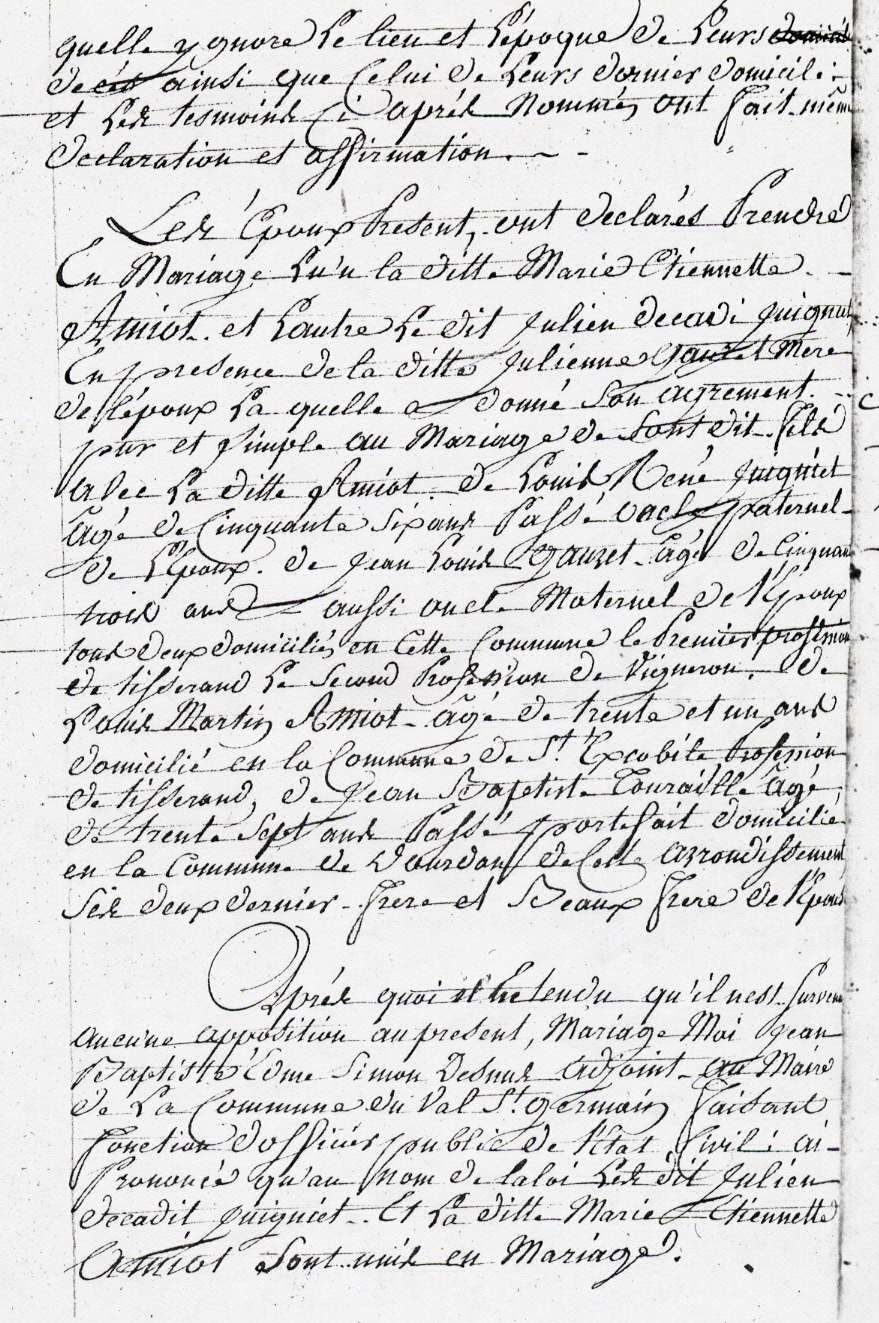 quelle y gnore Le lieu et L'époque de Leurs
decés ainsi que Celui de Leurs dernier domicile
et Les tesmoins Ci aprés Nommés ont fait même
declaration et affirmation.
Les Epoux Present, ont declarés Prendre
En Mariage Lu'n la ditte Marie Etiennette
Amiot. et Lautre Le dit Julien decadi Juigniet
En presence de la ditte Julienne Gauzet Mere
de L'époux La quelle a donné Son agrement
pur et Simple au Mariage de Sont dit fils
avec La ditte Amiot. de Louis René Juigniet
agé de Cinquante Six ans Passé oncle paternel
de L'Epoux. de Jean Louis Gauzet agé de Cinquante
trois ans aussi oncle Maternel de l'Epoux
tous deux domiciliés en Cette Commune le Premier profession
de tisserand Le Second Profession de Vigneron. de
Louis Martin Amiot agé de trente et un ans
domicilié en la Commune de St. Escobile Profession
de tisserand, de Jean Baptiste Touraille agé
de trente Sept ans Passé portefait domicilié
en la Commune de Dourdan de Cette arrondissement
Ses deux dernier frere et Beaux frere de l'Epouse
Aprés quoi et hetendu qu'il nest Survenu
aucune apposition au present, Mariage Moi Jean
Baptiste Edme Simon Desnus adjoint au Maire
de La Commune du Val St. germain faisant
fonction dofficier public de l'Etat Civil : ai
Prononcé qu'au nom de laloi Les dit Julien
decadit Juigniet. Et La ditte Marie Etiennette
Amiot Sont unis en Mariage.